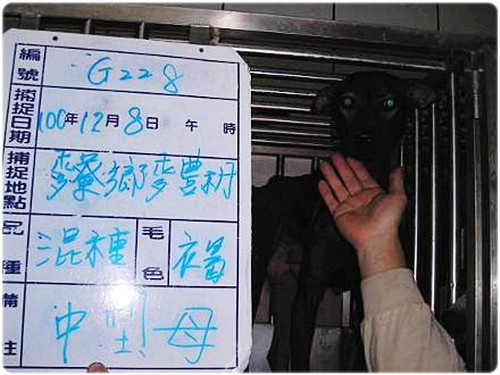 編號 G228
捕捉日期 100年12月8日 午 時
捕捉地點 麥寮鄉麥豐村
品種 混種 毛色
備註 中型 母